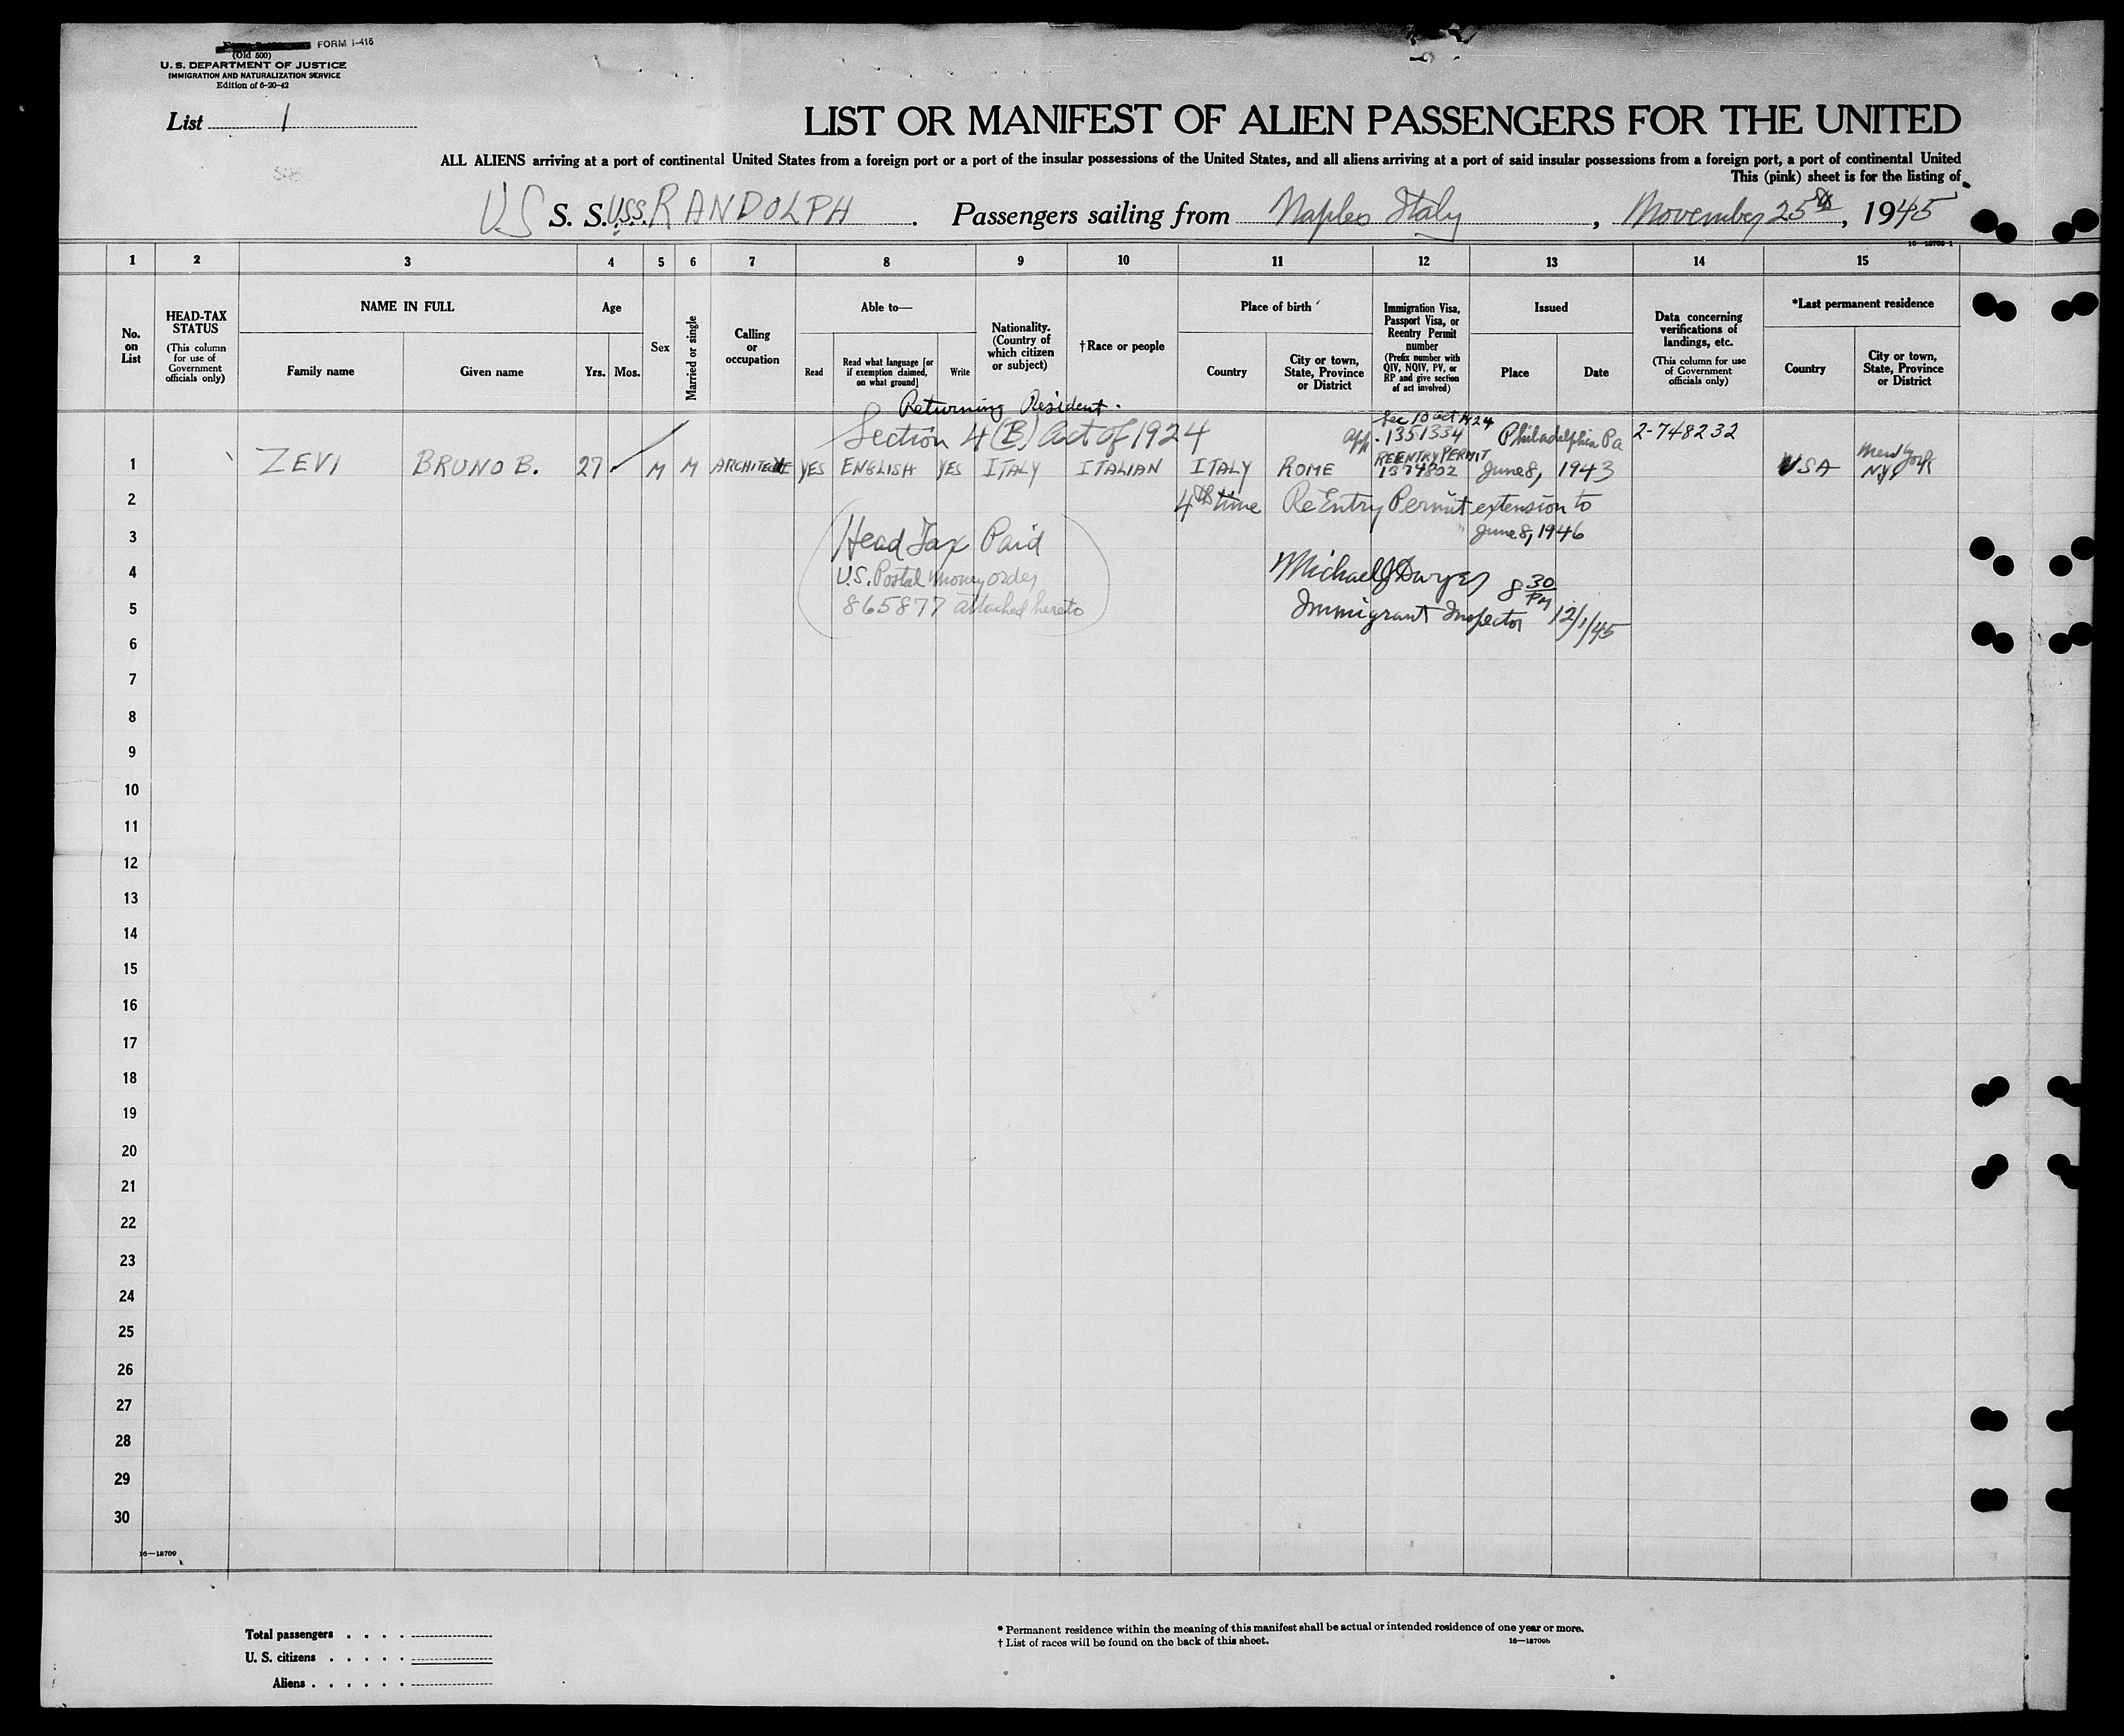 FORM I-415
(Old 500)
U. S. DEPARTMENT OF JUSTICE
IMMIGRATION AND NATURALIZATION SERVICE
Edition of 6-20-42
List 1
LIST OR MANIFEST OF ALIEN PASSENGERS FOR THE UNITED
ALL ALIENS arriving at a port of continental United States from a foreign port or a port of the insular possessions of the United States, and all aliens arriving at a port of said insular possessions from a foreign port, a port of continental United
This (pink) sheet is for the listing of
US S. S. U.S.S. RANDOLPH . Passengers sailing from Naples Italy , November 25th , 1945
16—18709-1
1 2 3 4 5 6 7 8 9 10 11 12 13 14 15
No. on List
HEAD-TAX STATUS
(This column for use of Government officials only)
NAME IN FULL
Family name
Given name
Age
Yrs.
Mos.
Sex
Married or single
Calling or occupation
Able to—
Read
Read what language [or if exemption claimed, on what ground]
Write
Nationality. (Country of which citizen or subject)
†Race or people
Place of birth
Country
City or town, State, Province or District
Immigration Visa, Passport Visa, or Reentry Permit number
(Prefix number with QIV, NQIV, PV, or RP and give section of act involved)
Issued
Place
Date
Data concerning verifications of landings, etc.
(This column for use of Government officials only)
*Last permanent residence
Country
City or town, State, Province or District
Returning Resident.
Section 4(B) Act of 1924
Sec 10 act 1924
app. 1351334
Philadelphia Pa
2-748232
1 ZEVI BRUNO B. 27 M M ARCHITECTE YES ENGLISH YES ITALY ITALIAN ITALY ROME REENTRY PERMIT 1374802 June 8, 1943 USA New York NY
2 4th time ReEntry Permit extension to
3 " June 8, 1946
Head Tax Paid
4 U.S. Postal Money order
Michael J Dwyer 8 30 PM
5 865877 attached hereto
Immigrant Inspector 12/1/45
6
7
8
9
10
11
12
13
14
15
16
17
18
19
20
21
22
23
24
25
26
27
28
29
30
16—18709
Total passengers . . . .
U. S. citizens . . . . .
Aliens . . . . . .
* Permanent residence within the meaning of this manifest shall be actual or intended residence of one year or more.
† List of races will be found on the back of this sheet.
16—18709b